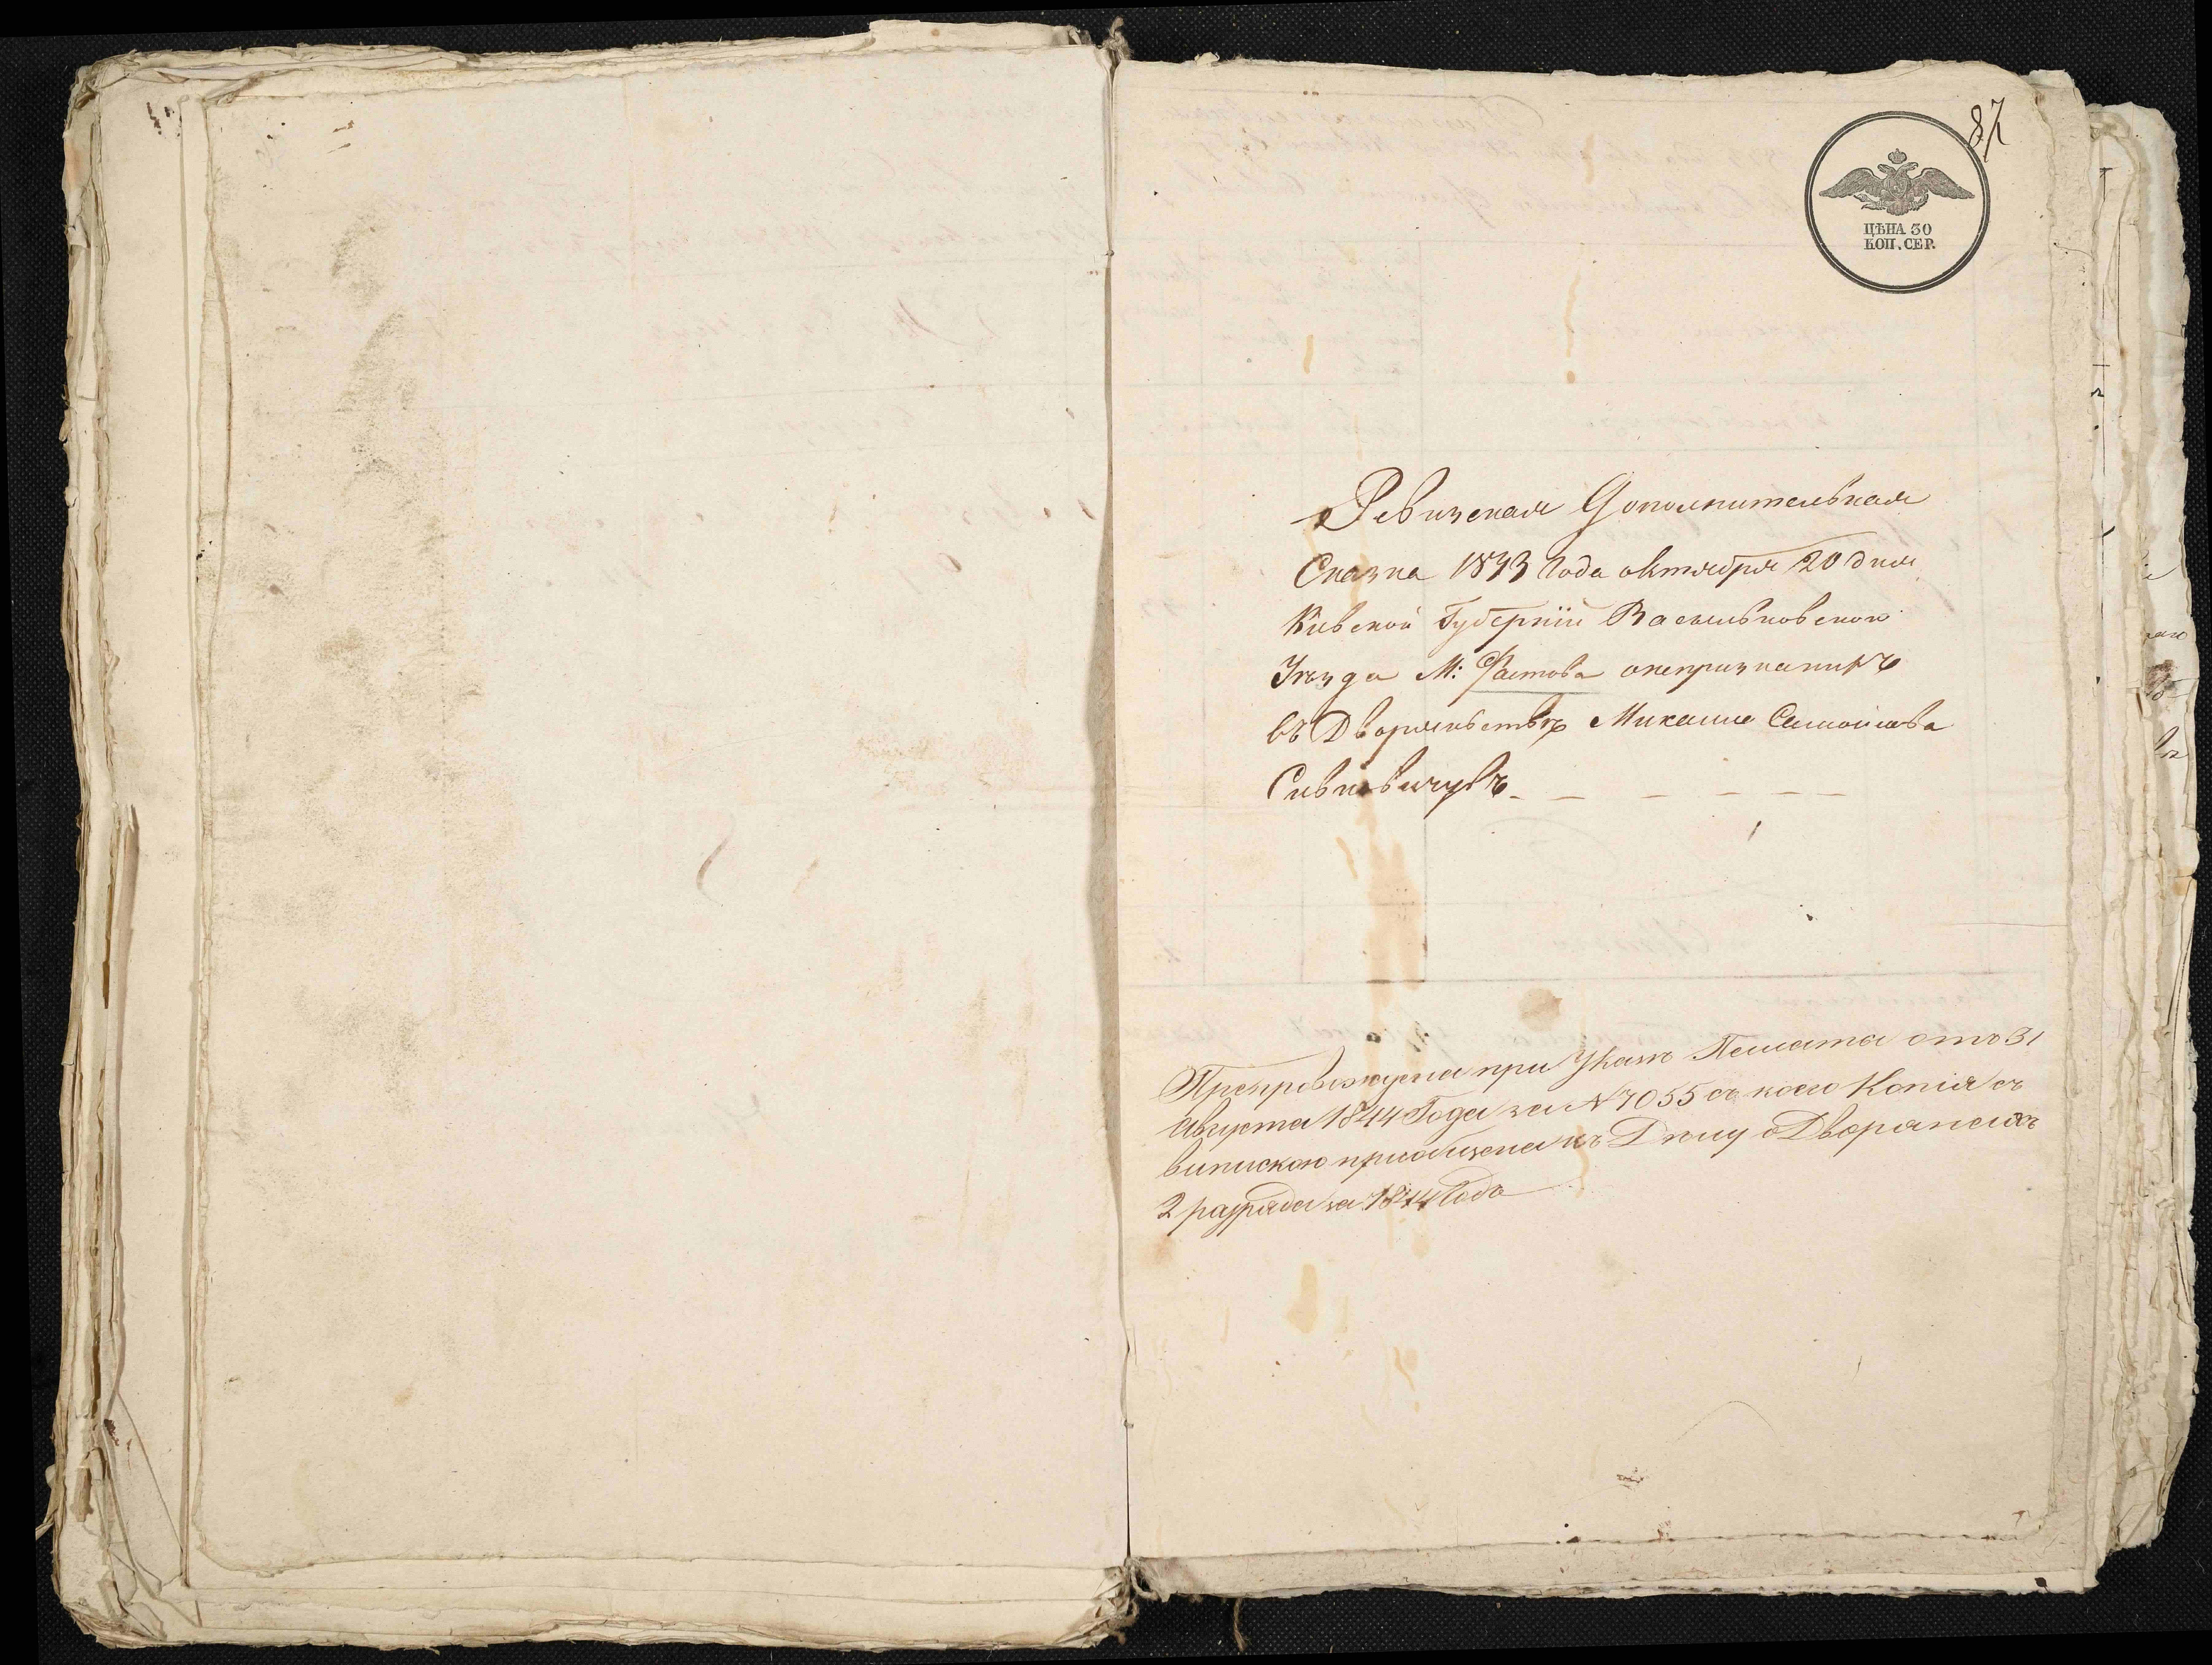 87
ЦѢНА 30
КОП. СЕР.
Ревизская Дополнительная
Сказка 1843 года октября 20 дня
Киевской Губерніи Васильковскои
Уѣзда М: Фастова онепризнаныхъ
въ Дворянствѣ Михаиле Самойлова
Сивковичувъ
Препровождена при Указѣ Сената отъ 31
Августа 1844 Года за № 7055 съ коего Копія съ
випискою приобщена къ Дѣлу о Дворянскихъ
2 разряда за 1844 Годъ